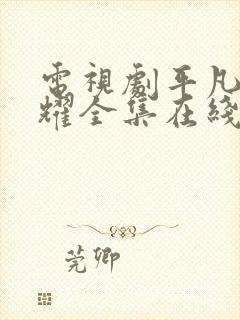 電視劇平凡
耀全集在綫
莞卿